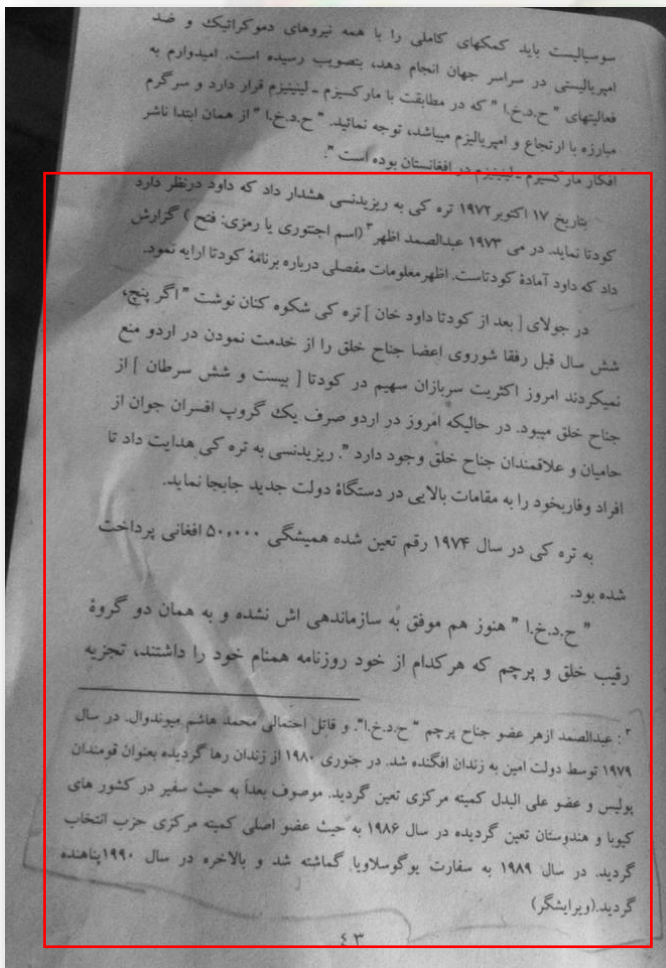 سوسیالیست باید کمکهای کاملی را با همه نیروهای دموکراتیک و ضد
امپریالیستی در سراسر جهان انجام دهد، بتصویب رسیده است. امیدوارم به
فعالیتهای " ح.د.خ.ا " که در مطابقت با مارکسیزم ـ لینینیزم قرار دارد و سرگرم
مبارزه با ارتجاع و امپریالیزم میباشد، توجه نمائید. " ح.د.خ.ا " از همان ابتدا ناشر
افکار مارکسیزم ـ لینینیزم در افغانستان بوده است ".
بتاریخ ۱۷ اکتوبر ۱۹۷۲ تره کی به ریزیدنسی هشدار داد که داود درنظر دارد
کودتا نماید. در می ۱۹۷۳ عبدالصمد اظهر۳ (اسم اجنتوری یا رمزی: فتح ) گزارش
داد که داود آمادۀ کودتاست. اظهرمعلومات مفصلی درباره برنامۀ کودتا ارایه نمود.
در جولای [ بعد از کودتا داود خان ] تره کی شکوه کنان نوشت " اگر پنج،
شش سال قبل رفقا شوروی اعضا جناح خلق را از خدمت نمودن در اردو منع
نمیکردند امروز اکثریت سربازان سهیم در کودتا [ بیست و شش سرطان ] از
جناح خلق میبود. در حالیکه امروز در اردو صرف یک گروپ افسران جوان از
حامیان و علاقمندان جناح خلق وجود دارد ". ریزیدنسی به تره کی هدایت داد تا
افراد وفاربخود را به مقامات بالایی در دستگاۀ دولت جدید جابجا نماید.
به تره کی در سال ۱۹۷۴ رقم تعین شده همیشگی ۵۰,۰۰۰ افغانی پرداخت
شده بود.
" ح.د.خ.ا " هنوز هم موفق به سازماندهی اش نشده و به همان دو گروۀ
رقیب خلق و پرچم که هرکدام از خود روزنامه همنام خود را داشتند، تجزیه
۳ : عبدالصمد ازهر عضو جناح پرچم " ح.د.خ.ا". و قاتل احتمالی محمد هاشم میوندوال. در سال
۱۹۷۹ توسط دولت امین به زندان افگنده شد. در جنوری ۱۹۸۰ از زندان رها گردیده بعنوان قومندان
پولیس و عضو علی البدل کمیته مرکزی تعین گردید. موصوف بعداً به حیث سفیر در کشور های
کیوبا و هندوستان تعین گردیده در سال ۱۹۸۶ به حیث عضو اصلی کمیته مرکزی حزب انتخاب
گردید. در سال ۱۹۸۹ به سفارت یوگوسلاویا گماشته شد و بالاخره در سال ۱۹۹۰پناهنده
گردید.(ویرایشگر)
٤٣